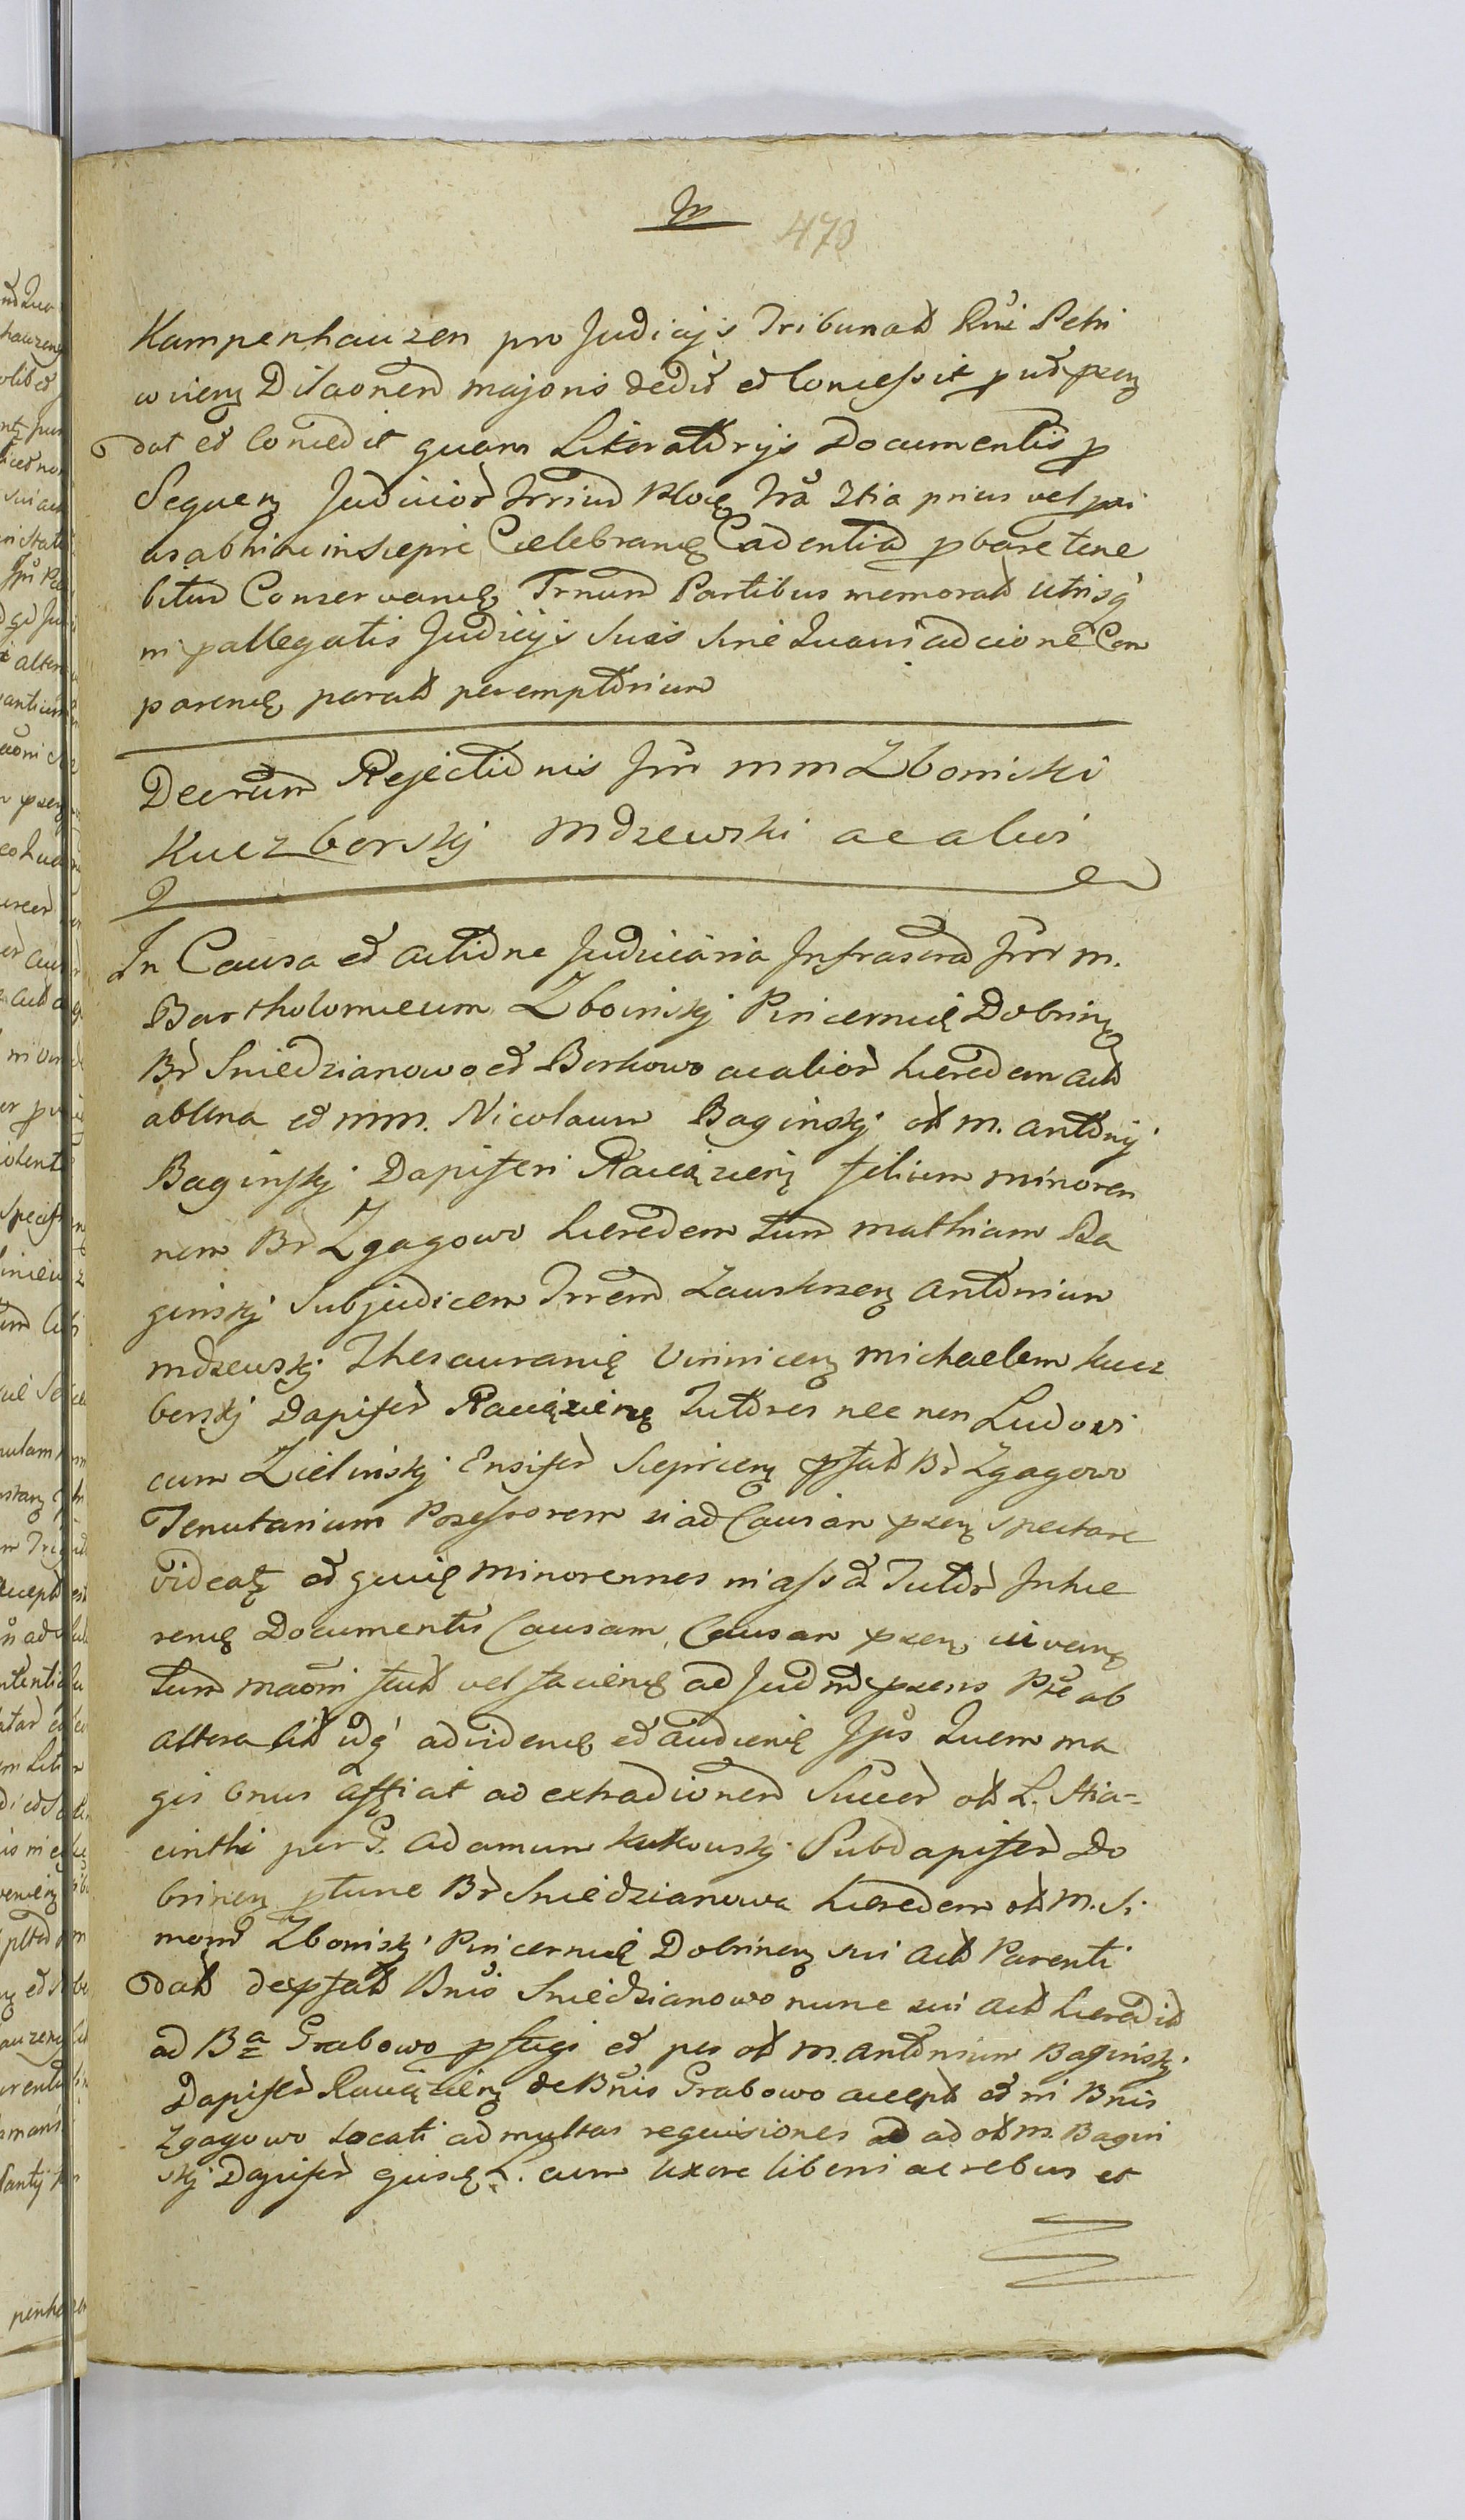 470
Kampenhauzen pro Judicijs Tribunat Rni Petri
wien Dilaonem majoris dedit et Concessit put psen
dat et Concedit quam Literatorijs Documentis p
Sequen Judicior Trrium Ploc Tra Ztia prius vel pri
us abhinc in Sieprc Celebran Cadentia pbare tene
bitur Conservan Trnum Partibus memorat utrisq
in pallegatis Judicijs Suis Sine adcione Com
paren parat peremptorium
Decrtum Rejectionis Jm mm Zboinski
Kuczborskj Mdzewski ac alios
In Causa et actione Judiciaria Infrascra Jm m.
Bartholomeum Zboinskj Pincern Dobrin
Br Sniedzianowo et Borkowo ac alior heredem act
ab Una et mm. Nicolaum Baginskj olt m. Antonij
Baginskj Dapiferi Raciązien filium minoren
nem Br Zgagowo heredem tum Mathiam Ba
ginskj Subjudicem Trrem Zauskrzen Antonium
Mdzewskj Thesauran Vinnicen Michaelem Kucz
borskj Dapifer Raciązien Tutores nec non Ludovi
cum Zielinskj Ensifer Sieprcen pfat Br Zgagowo
Tenutarium Possessorem si ad Causam psen spectare
videat et quic minorennes in ass Tutor Inhe
ren Documentis Causam, Causan psen
tum maoni fat vel facien ad Jud psens Pte ab
altera Cit idq ad viden et audien Ipos Quem ma
gis onus afficiat ad extradionem Succer olt L. Hia-
cinthi per G. Adamum Kutkowskj Subdapifer Do
brinen ptunc Br Sniedzianowa heredem olt M. Si
mon Zboinskj Pincern Dobrinen sui act Parenti
dat de pfat Bnis Sniedzianowo nunc sui act heredit
ad Ba Grabowo pfugi et per olt m. Antonium Baginskj
Dapifer Raciązien de Bnis Grabowo accept et in Bnis
Zgagowo Locati ad multas requisiones ad olt m. Bagin
skj Dapifer ejusq L. cum uxore liberis ac rebus et